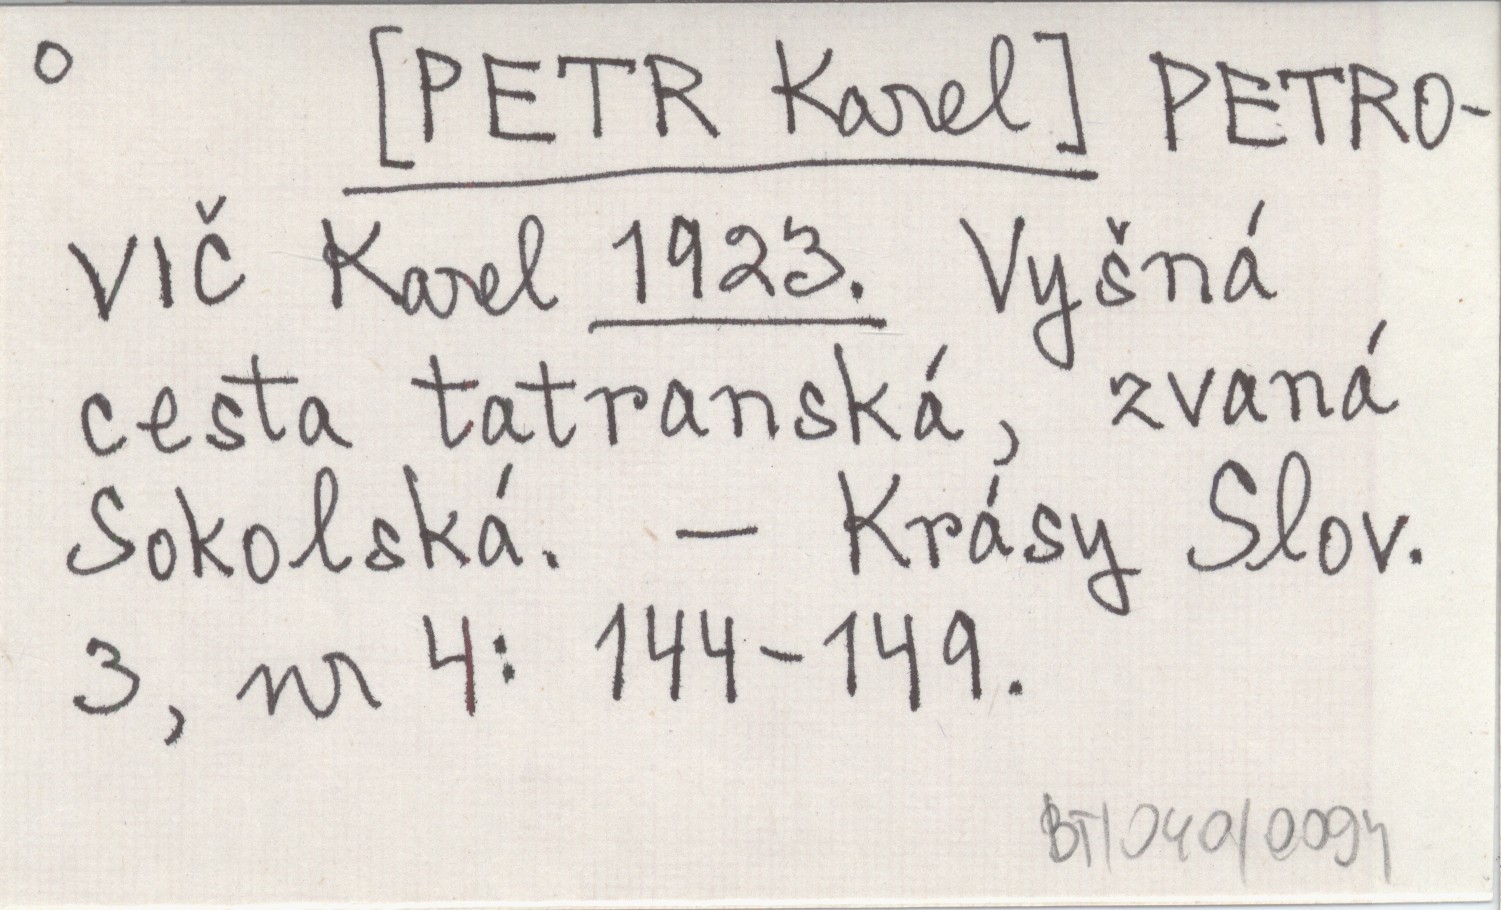 o [PETR Karel] PETRO-
VIČ Karel 1923. Vyšná
cesta tatranská, zvaná
Sokolská. — Krásy Slov.
3, nr 4: 144-149.
BT/040/0094